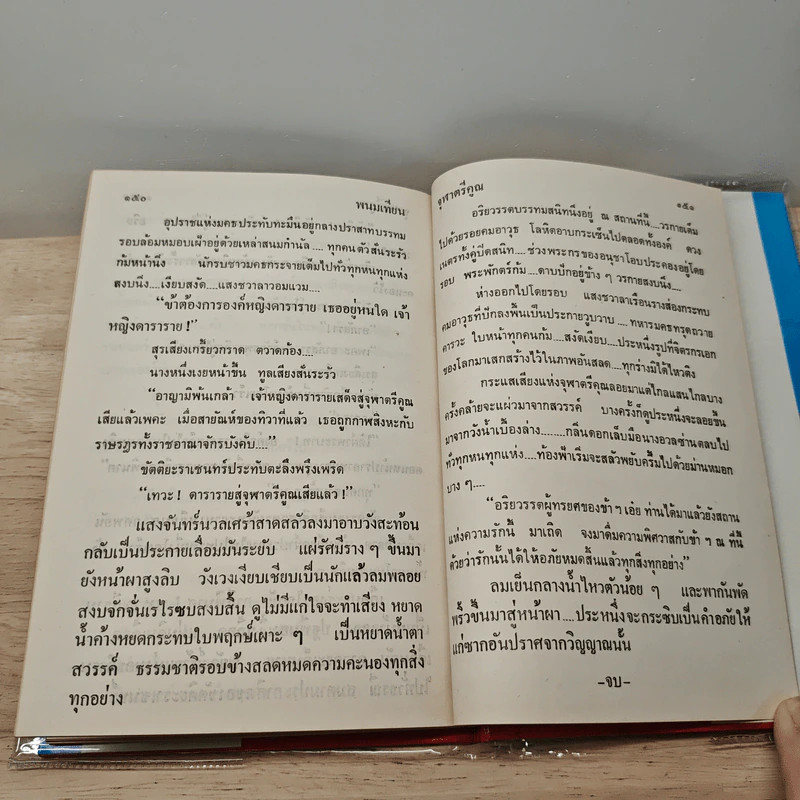 ๑๕๐ พนมเทียน
อุปราชแห่งมคธประทับทะมึนอยู่กลางปราสาทบรรทม
รอบล้อมหมอบเฝ้าอยู่ด้วยเหล่าสนมกำนัล.... ทุกคนตัวสั่นระรัว
ก้มหน้านิ่ง นักรบชาวมคธกระจายเต็มไปทั่วทุกหนทุกแห่ง
สงบนิ่ง....เงียบสงัด....แสงชวาลาวอมแวม....
“ข้าต้องการองค์หญิงดาราราย เธออยู่หนใด เจ้า
หญิงดาราราย !”
สุรเสียงเกรี้ยวกราด ตวาดก้อง....
นางหนึ่งเงยหน้าขึ้น ทูลเสียงสั่นระรัว
“อาญามิพ้นเกล้า เจ้าหญิงดารารายเสด็จสู่จุฬาตรีคูณ
เสียแล้วเพคะ เมื่อสายัณห์ของทิวาที่แล้ว เธอถูกกาพสิงหะกับ
ราษิรฎรทั้งราชอาณาจักรบังคับ....”
ขัตติยะราเชนทร์ประทับตะลึงพรึงเพริด
“เทวะ ! ดารารายสู่จุฬาตรีคูณเสียแล้ว !”
แสงจันทร์นวลเศร้าสาดสลัวลงมาอาบวังสะท้อน
กลับเป็นประกายเลื่อมมันระยับ แผ่รัศมีราง ๆ ขึ้นมา
ยังหน้าผาสูงลิบ วังเวงเงียบเชียบเป็นนักแล้วลมพลอย
สงบจักจั่นเรไรซบสงบสิ้น ดูไม่มีแก่ใจจะทำเสียง หยาด
น้ำค้างหยดกระทบใบพฤกษ์เผาะ ๆ เป็นหยาดน้ำตา
สวรรค์ ธรรมชาติรอบข้างสลดหมดความคะนองทุกสิ่ง
ทุกอย่าง
จุฬาตรีคูณ ๑๕๑
อริยวรรตบรรทมสนิทนิ่งอยู่ ณ สถานที่นี้....วรกายเต็ม
ไปด้วยรอยคมอาวุธ โลหิตอาบกระเซ็นไปตลอดทั้งองค์ ดวง
เนตรทั้งคู่ปิดสนิท....ช่วงพระกรของอนุชาโอบประคองอยู่โดย
รอบ พระพักตร์ก้ม....ดาบบักอยู่ข้าง ๆ วรกายสงบนิ่ง....
ห่างออกไปโดยรอบ แสงชวาลาเรือนรางส่องกระทบ
คมอาวุธที่ปักลงพื้นเป็นประกายวูบวาบ....ทหารมคธทรุดถวาย
คารวะ ใบหน้าทุกคนก้ม....สงัดเงียบ....ประหนึ่งรูปที่จิตรกรเอก
ของโลกมาเสกสร้างไว้ในภาพอันสลด....ทุกร่างมิได้ไหวติง
กระแสเสียงแห่งจุฬาตรีคูณลอยมาแต่ไกลแสนไกลบาง
ครั้งคล้ายจะแผ่วมาจากสวรรค์ บางครั้งก็ดูประหนึ่งจะลอยขึ้น
มาจากวังน้ำเบื้องล่าง....กลิ่นดอกเล็บมือนางอวลซ่านตลบไป
ทั่วทุกหนทุกแห่ง....ท้องฟ้าเริ่มจะสลัวพยับครึ้มไปด้วยม่านหมอก
บาง ๆ....
“อริยวรรตผู้ทรยศของข้า ฯ เอ๋ย ท่านได้มาแล้วยังสถาน
แห่งความรักนี้ มาเถิด จงมาดื่มความพิศวาสกับข้า ฯ ณ ที่นี้
ด้วยว่ารักนั้นได้ให้อภัยหมดสิ้นแล้วทุกสิ่งทุกอย่าง”
ลมเย็นกลางน้ำไหวตัวน้อย ๆ และพากันพัด
พริ้วขึ้นมาสู่หน้าผา....ประหนึ่งจะกระซิบเป็นคำอภัยให้
แก่ซากอันปราศจากวิญญาณนั้น
–จบ–